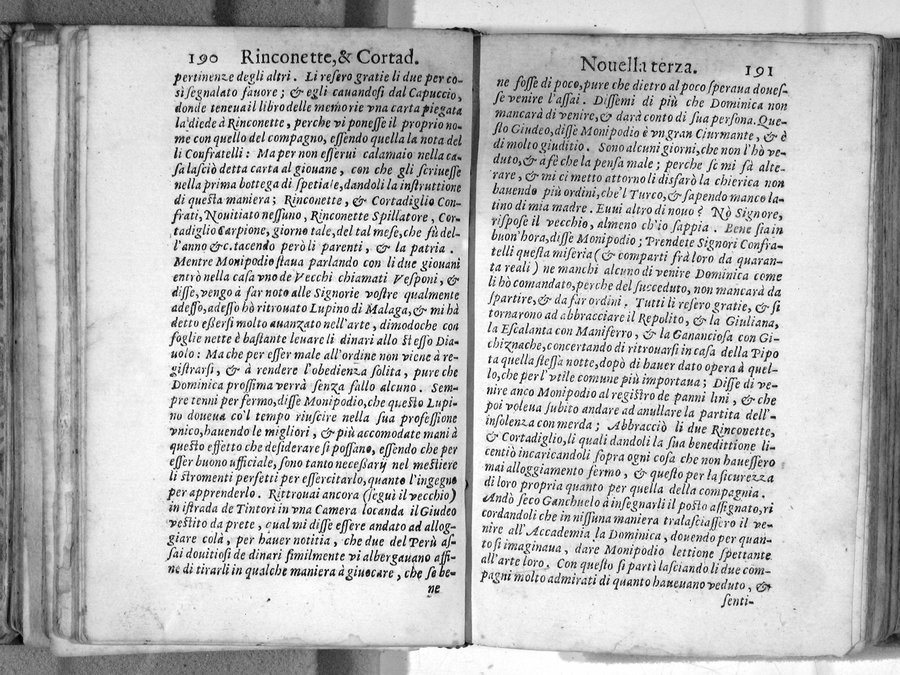 190 Rinconette, & Cortad.
pertinenze degli altri. Li resero gratie li due per co-
sì segnalato fauore; & egli cauandosi dal Capuccio,
donde teneua il libro delle memorie vna carta piegata
la diede à Rinconette, perche vi ponesse il proprio no-
me con quello del compagno, essendo quella la nota del
li Confratelli: Ma per non esserui calamaio nella ca-
sa lasciò detta carta al giouane, con che gli scriuesse
nella prima bottega di spetiale, dandoli la instruttione
di questa maniera; Rinconette, & Cortadiglio Con-
frati, Nouitiato nessuno, Rinconette Spillatore, Cor-
tadiglio Carpione, giorno tale, del tal mese, che fù del-
l'anno &c. tacendo però li parenti, & la patria.
Mentre Monipodio staua parlando con li due giouani
entrò nella casa vno de Vecchi chiamati Vesponi, &
disse, vengo à far noto alle Signorie vostre qualmente
adesso, adesso hò ritrouato Lupino di Malaga, & mi hà
detto eßersi molto auanzato nell'arte, dimodoche con
foglie nette è bastante leuare li dinari allo stesso Dia-
uolo: Ma che per esser male all'ordine non viene à re-
gistrarsi, & à rendere l'obedienza solita, pure che
Dominica prossima verrà senza fallo alcuno. Sem-
pre tenni per fermo, disse Monipodio, che questo Lupi-
no doueua co'l tempo riuscire nella sua professione
vnico, hauendo le migliori, & più accomodate mani à
questo effetto che desiderare si possano, essendo che per
esser buono ufficiale, sono tanto necessarÿ nel mestiere
li stromenti perfetti per essercitarlo, quanto l'ingegno
per apprenderlo. Ritrouai ancora (seguì il vecchio)
in istrada de Tintori in vna Camera locanda il Giudeo
vestito da prete, qual mi disse essere andato ad allog-
giare colà, per hauer notitia, che due del Perù as-
sai douitiosi de dinari similmente vi albergauano affi-
ne di tirarli in qualche maniera à giuocare, che se be-
ne
Nouella terza. 191
ne fosse di poco, pure che dietro al poco speraua doues-
se venire l'assai. Dissemi di più che Dominica non
mancarà di venire, & darà conto di sua persona. Que-
sto Giudeo, disse Monipodio è vn gran Ciurmante, & è
di molto giuditio. Sono alcuni giorni, che non l'hò ve-
duto, & a fè che la pensa male; perche se mi sà alte-
rare, & mi ci metto attorno li disfarò la chierica non
hauendo più ordini, che'l Turco, & sapendo manco la-
tino di mia madre. Euui altro di nouo? Nò Signore,
rispose il vecchio, almeno ch'io sappia. Bene sia in
buon'hora, disse Monipodio; Prendete Signori Confra-
telli questa miseria (& compartì frà loro da quaran-
ta reali) ne manchi alcuno di venire Dominica come
li hò comandato, perche del succeduto, non mancarà da
spartire, & da far ordini. Tutti li resero gratie, & si
tornarono ad abbracciare il Repolito, & la Giuliana,
la Escalanta con Maniferro, & la Gananciosa con Gi-
chiznache, concertando di ritrouarsi in casa della Pipo
ta quella stessa notte, dopò di hauer dato opera à quel-
lo, che per l'vtile comune più importaua; Disse di ve-
nire anco Monipodio al registro de panni lini, & che
poi voleua subito andare ad anullare la partita dell'-
insolenza con merda; Abbracciò li due Rinconette,
& Cortadiglio, li quali dandoli la sua benedittione li-
centiò incaricandoli sopra ogni cosa che non hauessero
mai alloggiamento fermo, & questo per la sicurezza
di loro propria quanto per quella della compagnia.
Andò seco Ganchuelo à insegnarli il posto assignato, ri
cordandoli che in nissuna maniera tralasciassero il ve-
nire all'Accademia la Dominica, douendo per quan-
to si imaginaua, dare Monipodio lettione spettante
all'arte loro. Con questo si partì lasciando li due com-
pagni molto admirati di quanto haueuano veduto, &
senti-